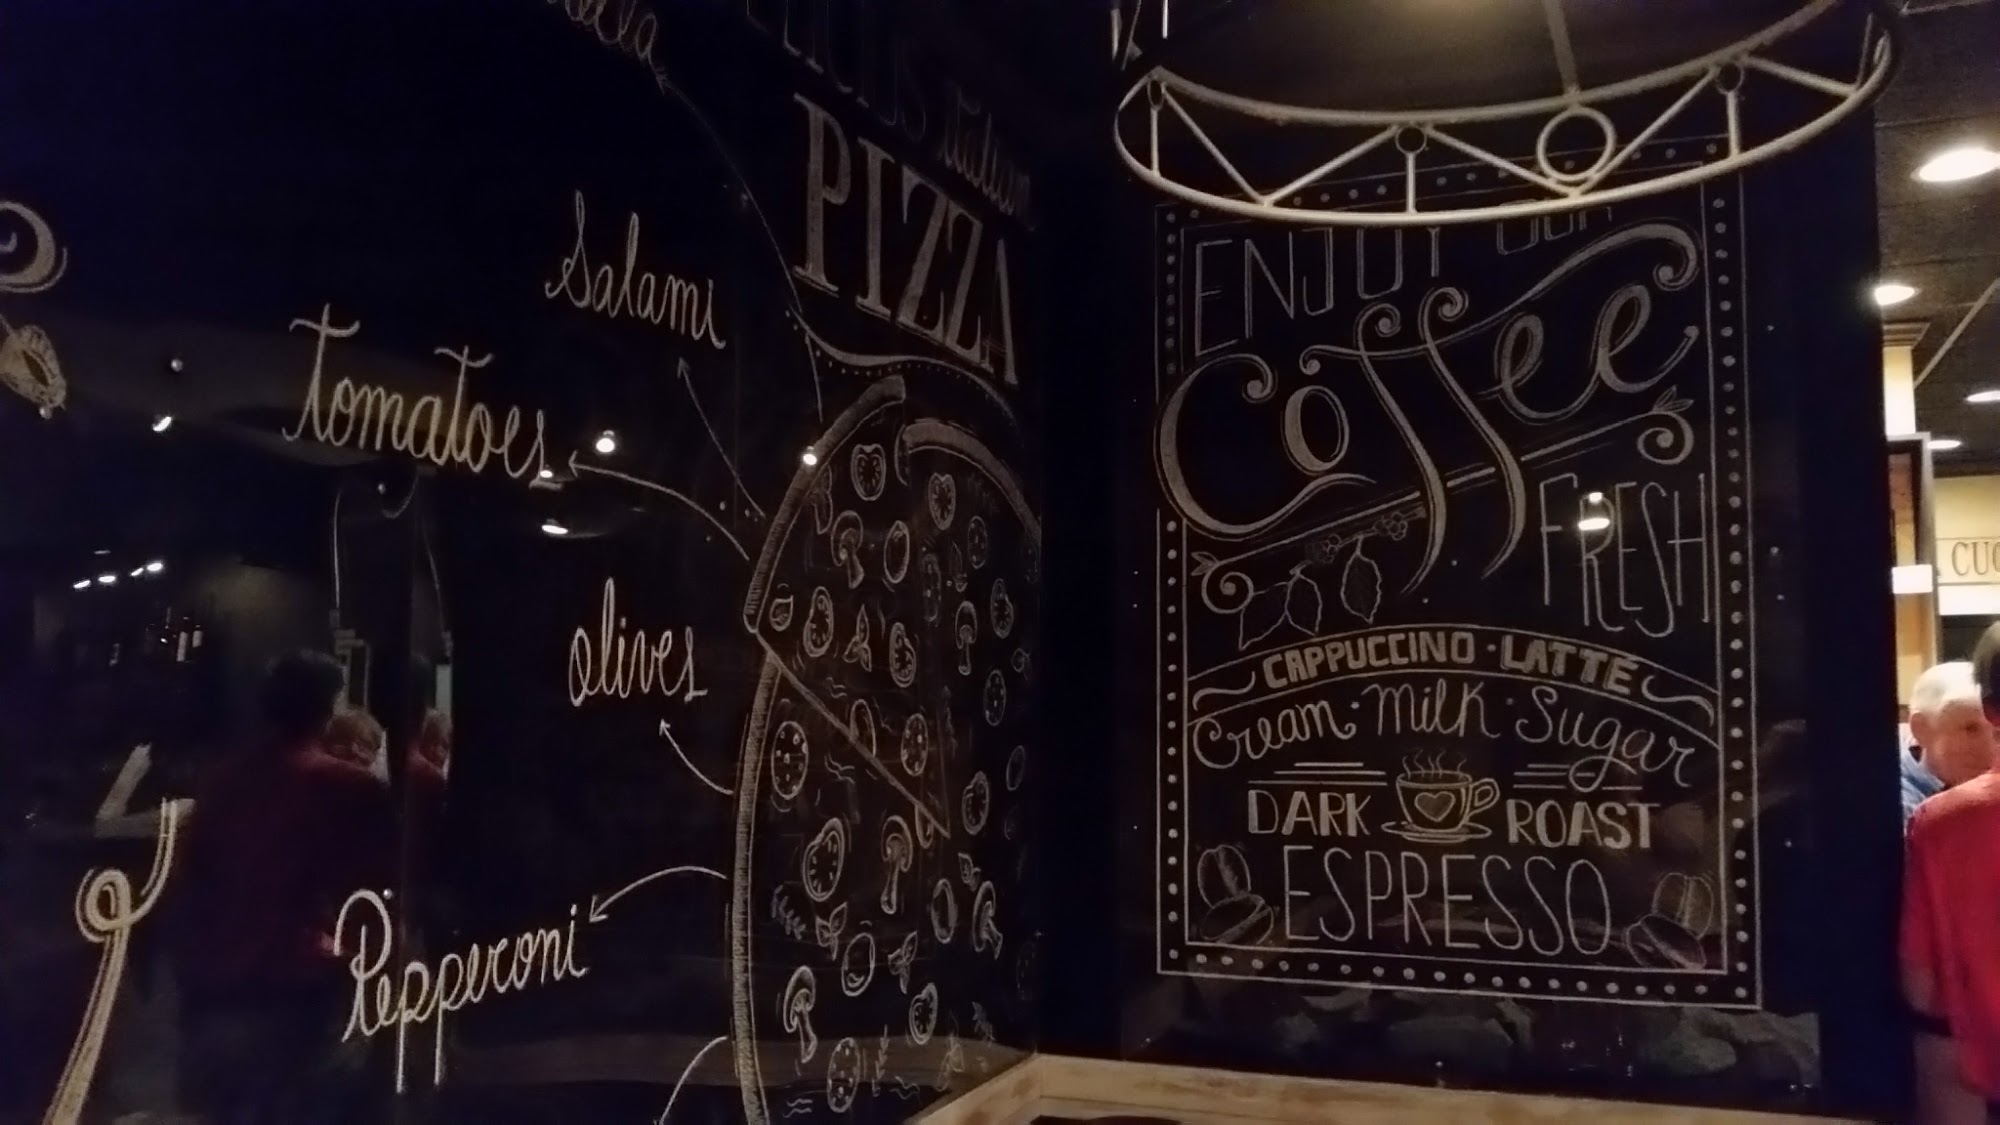 Italian
PIZZA
Salami
tomatoes
olives
Pepperoni
ENJOY OUR
Coffee
FRESH
CAPPUCCINO · LATTÉ
Cream · Milk · Sugar
DARK ROAST
ESPRESSO